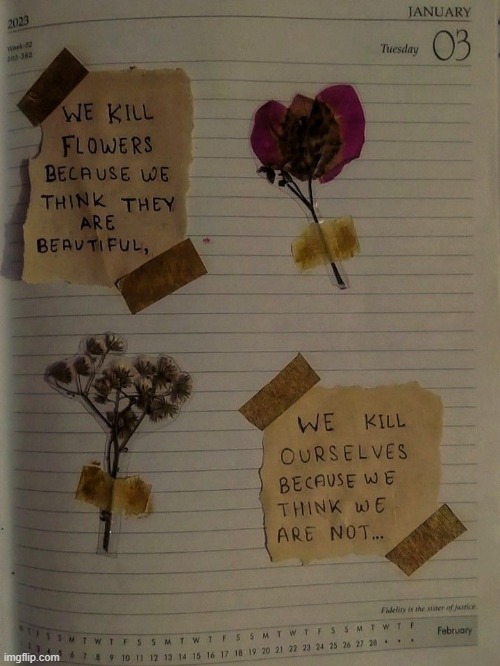 JANUARY
2023
Tuesday 03
WE KILL
FLOWERS
BECAUSE WE
THINK THEY
ARE
BEAUTIFUL,
WE KILL
OURSELVES
BECAUSE WE
THINK WE
ARE NOT...
Fidelity is the sister of justice.
T F S S M T W T F S S M T W T F S S M T W T F S S M T W T F
6 7 8 9 10 11 12 13 14 15 16 17 18 19 20 21 22 23 24 25 26 27 28
February
imgflip.com